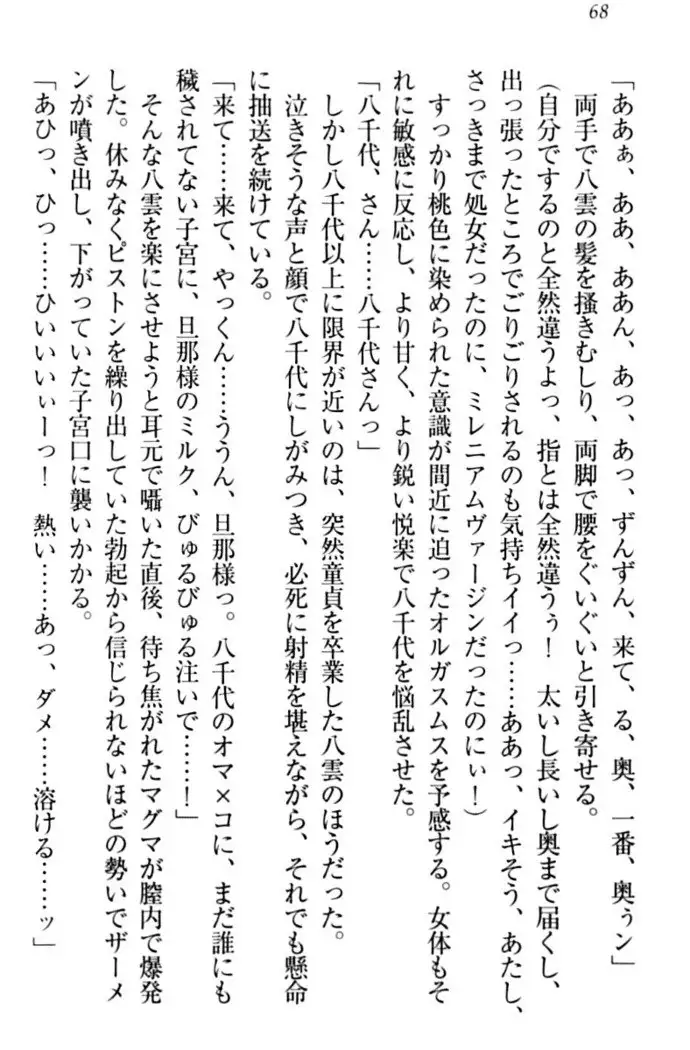 68
「ああぁ、ああ、ああん、あっ、あっ、ずんずん、来て、る、奥、一番、奥ぅン」
両手で八雲の髪を掻きむしり、両脚で腰をぐいぐいと引き寄せる。
(自分でするのと全然違うよっ、指とは全然違うぅ! 太いし長いし奥まで届くし、
出っ張ったところでごりごりされるのも気持ちイイっ……ああっ、イキそう、あたし、
さっきまで処女だったのに、ミレニアムヴァージンだったのにぃ!)
すっかり桃色に染められた意識が間近に迫ったオルガスムスを予感する。女体もそ
れに敏感に反応し、より甘く、より鋭い悦楽で八千代を悩乱させた。
「八千代、さん……八千代さんっ」
しかし八千代以上に限界が近いのは、突然童貞を卒業した八雲のほうだった。
泣きそうな声と顔で八千代にしがみつき、必死に射精を堪えながら、それでも懸命
に抽送を続けている。
「来て……来て、やっくん……ううん、旦那様っ。八千代のオマ×コに、まだ誰にも
穢されてない子宮に、旦那様のミルク、びゅるびゅる注いで……!」
そんな八雲を楽にさせようと耳元で囁いた直後、待ち焦がれたマグマが膣内で爆発
した。休みなくピストンを繰り出していた勃起から信じられないほどの勢いでザーメ
ンが噴き出し、下がっていた子宮口に襲いかかる。
「あひっ、ひっ……ひいいいぃーっ! 熱い……あっ、ダメ……溶ける……ッ」